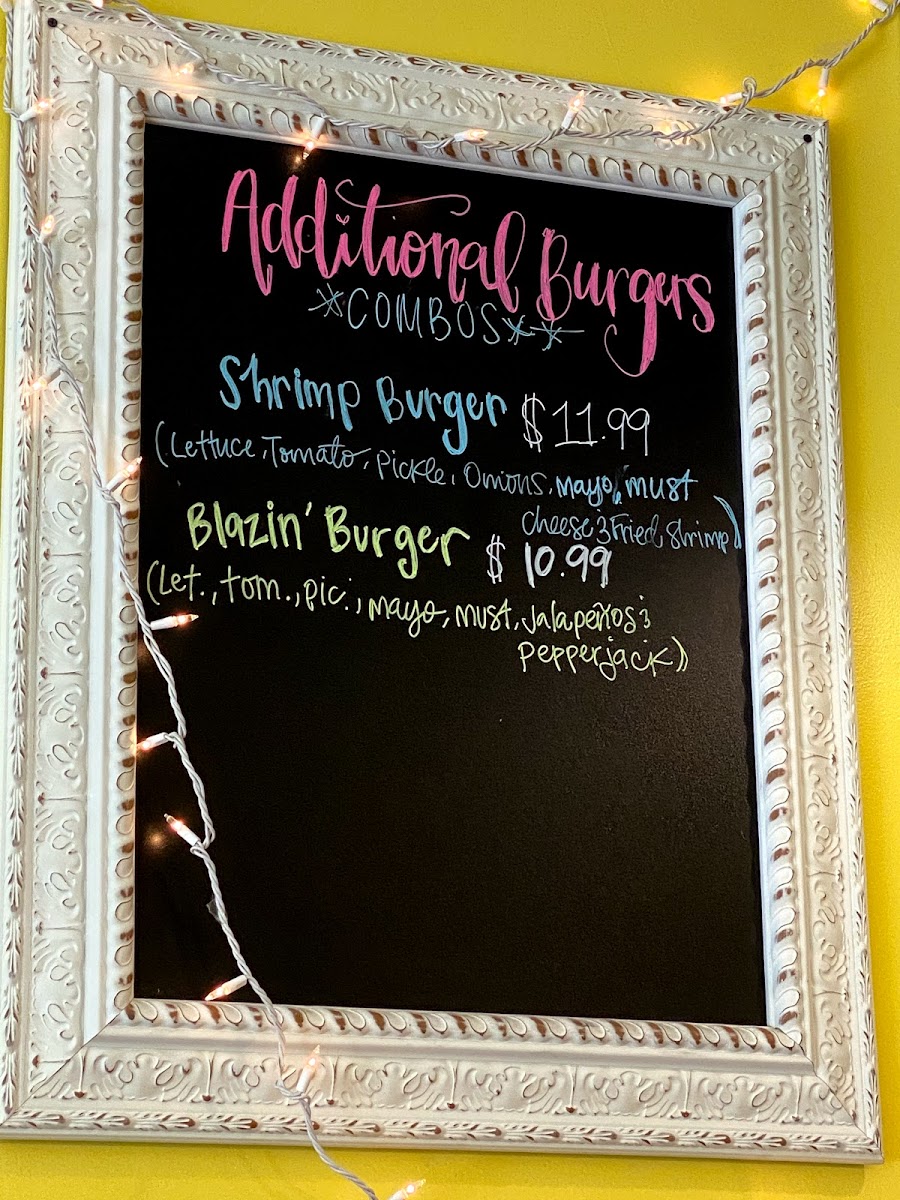 Additional Burgers
*COMBOS**
Shrimp Burger $11.99
(Lettuce, Tomato, Pickle, Onions, mayo, must
cheese & Fried Shrimp)
Blazin' Burger $10.99
(Let., tom., pic., mayo, must, Jalapeños &
Pepperjack)